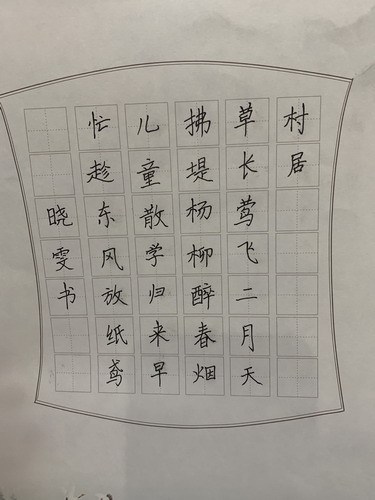 村居
草长莺飞二月天
拂堤杨柳醉春烟
儿童散学归来早
忙趁东风放纸鸢
晓雯书